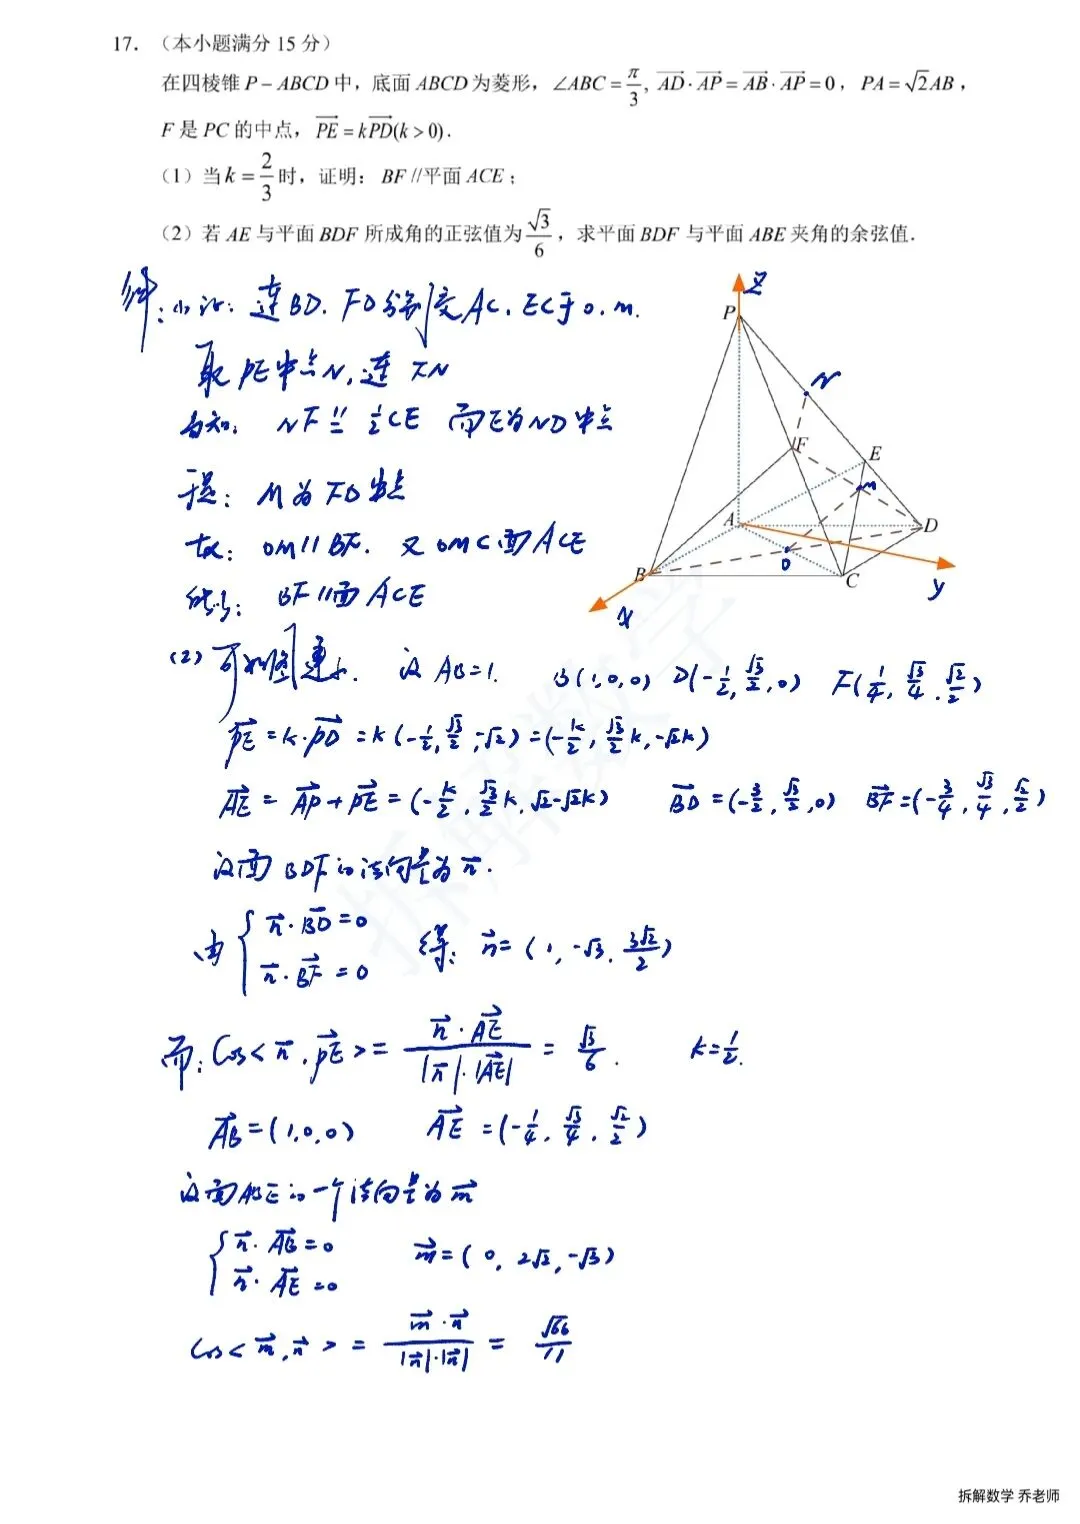 17. （本小题满分 15 分）
在四棱锥 P－ABCD 中，底面 ABCD 为菱形，∠ABC = π/3, AD·AP = AB·AP = 0，PA = √2AB，
F 是 PC 的中点，PE = kPD(k > 0).
（1）当 k = 2/3 时，证明：BF //平面 ACE；
（2）若 AE 与平面 BDF 所成角的正弦值为 √3/6，求平面 BDF 与平面 ABE 夹角的余弦值.
解: (1) 证: 连BD. FD分别交AC. EC于O. M.
取PE中点N, 连FN
易知: NF ∥= ½CE 而E为ND中点
于是: M为FD中点
故: OM // BF. 又OM⊂面ACE
所以: BF//面ACE
P
Z
N
F
E
M
A
D
O
B
C
x
y
(2) 可如图建系. 设AB=1. B(1,0,0) D(-1/2, √3/2, 0) F(1/4, √3/4, √2/2)
PE = k·PD = k(-1/2, √3/2, -√2) = (-k/2, √3/2 k, -√2k)
AE = AP + PE = (-k/2, √3/2 k, √2-√2k) BD = (-3/2, √3/2, 0) BF = (-3/4, √3/4, √2/2)
设面BDF的法向量为n.
由 { n·BD = 0
n·BF = 0 得: n = (1, -√3, 3√2/2)
而: cos<n, PE> = n·AE / |n|·|AE| = √3/6. k = 1/2.
AB = (1,0,0) AE = (-1/4, √3/4, √2/2)
设面ABE的一个法向量为m
{ n·AB = 0
n·AE = 0 m = (0, 2√2, -√3)
cos<m, n> = m·n / |n|·|n| = √66/11
拆解数学
拆解数学 乔老师